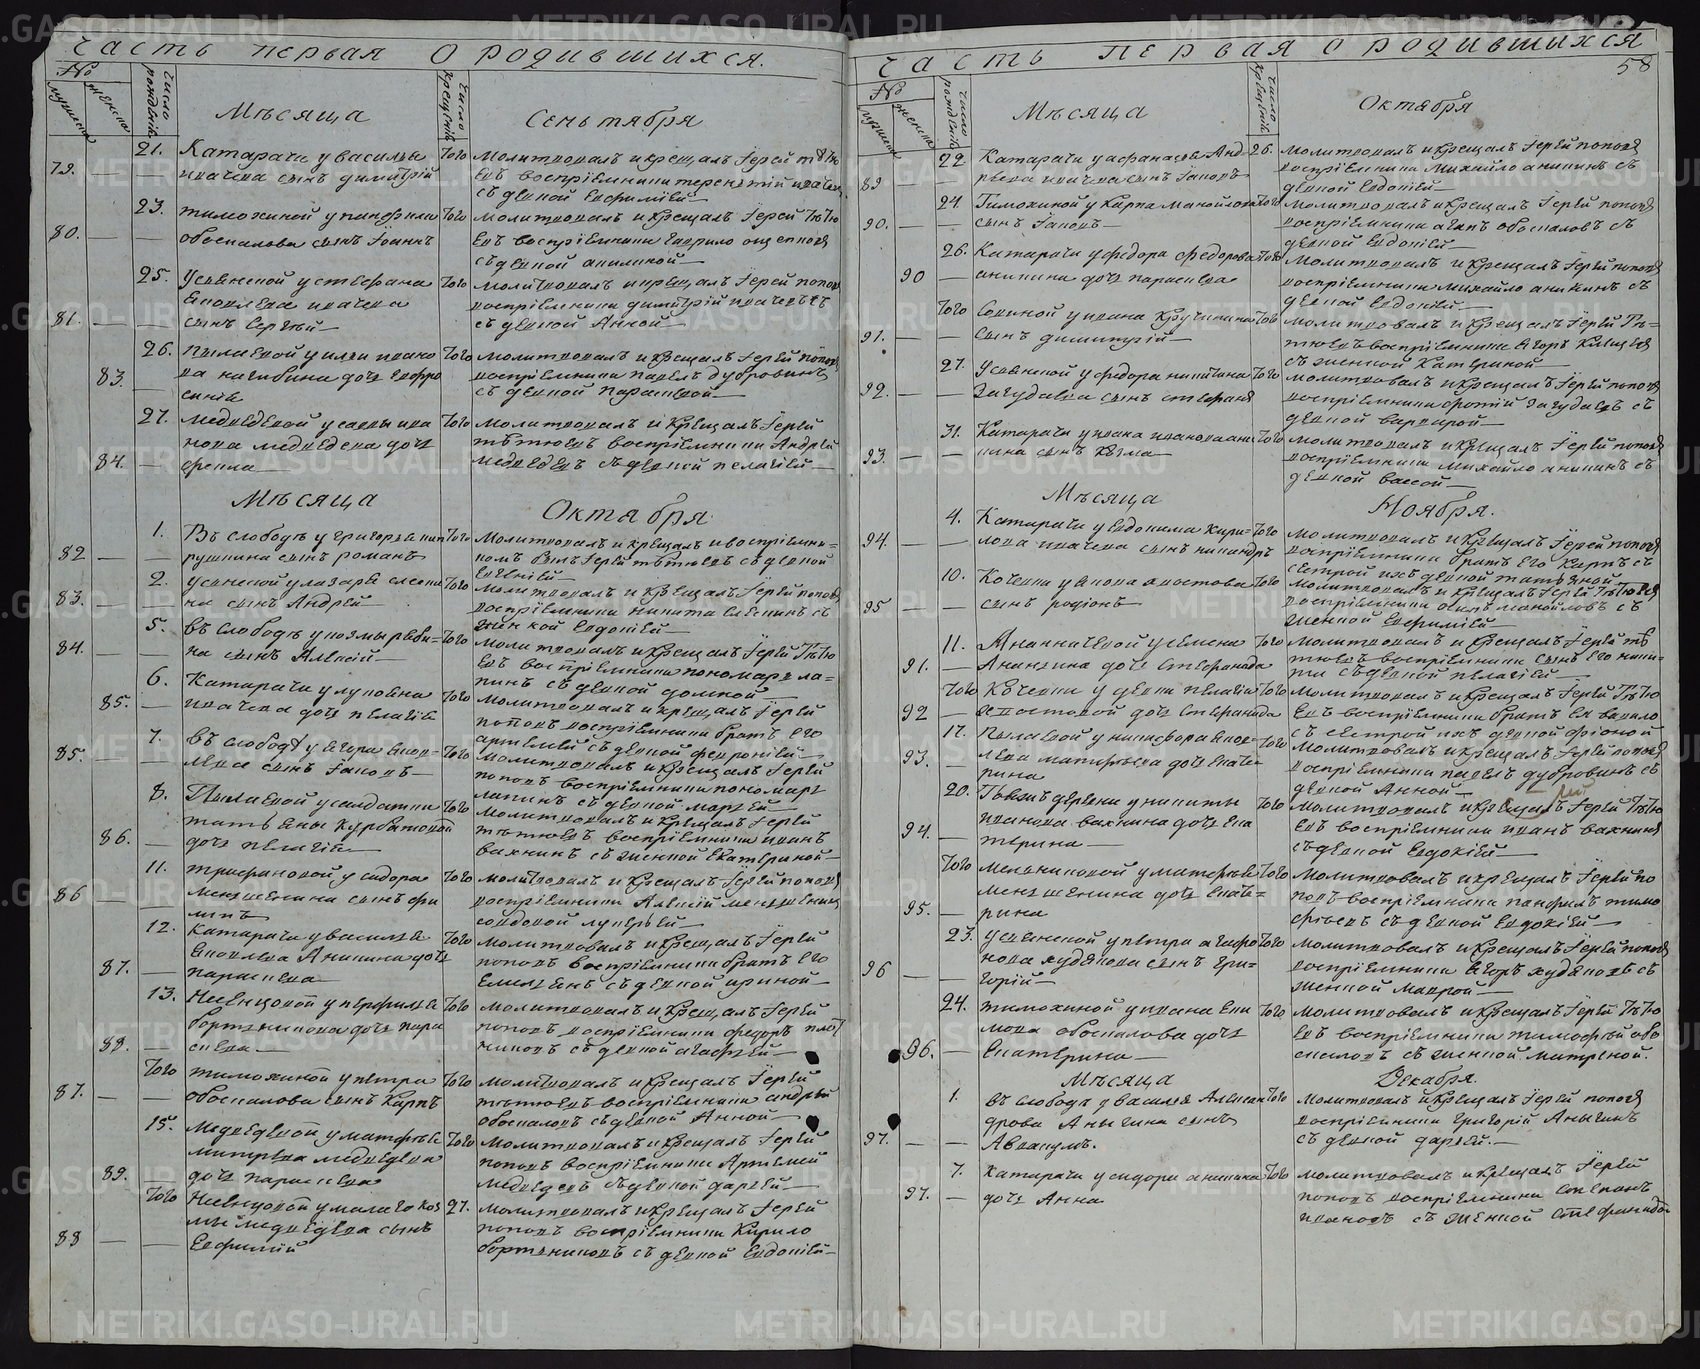 Часть первая о родившихся.
№
мужеска
женска
число рожденiя
Мѣсяца
число крещенiя
Сентября
79.
21.
Катарачи у василья
ткачева сынъ димитрiй
того
молитвовалъ и крещалъ Iерей
воспрiемники терентiй ткачев
съ девкой Евфимiей
80.
23.
тимохиной у панфила
обоскалова сынъ Iоаннъ
того
молитвовалъ и крещалъ Iерей Тѣтю
евъ воспрiемники гаврило
съ девкой акилиной
81.
25.
Усѣнской у стефана
Яковлева ткачева
сынъ Сергѣй
того
молитвовалъ и крещалъ Iерей попов
воспрiемники димитрiй ткачевъ
съ девкой Анной
83.
26.
Пылаевой у ильи ивано
ва нагибина дочь Евфро
синiя
того
молитвовалъ и крещалъ Iерей попов
воспрiемники павелъ дубровинъ
съ девкой Парасквой
84.
27.
медведевой у саввы ива
нова медведева дочь
фекла
того
молитвовалъ и крещалъ Iерей
тѣтюевъ воспрiемники Андрей
медведевъ съ девкой пелагiей
Мѣсяца
Октября
82
1.
Въ слободѣ у григорья
сынъ романъ
того
молитвовалъ и крещалъ и воспрiемни-
комъ былъ Iерей тѣтюевъ съ девкой
Евгенiей
83.
2.
усѣнской у лазаря елеси
на сынъ Андрей
того
молитвовалъ и крещалъ Iерей попов
воспрiемники никита елесинъ съ
женкой евдокiей
84.
5.
въ слободѣ у козмы реви-
на сынъ Алексiй
того
молитвовалъ и крещалъ Iерей Тѣтю
евъ воспрiемники пономарь ла-
пинъ съ девкой домной
85.
6.
Катарачи у луки
ткачева дочь пелагiя
того
молитвовалъ и крещалъ Iерей
поповъ воспрiемники братъ его
артемей съ девкой февронiей
85.
7.
въ слободѣ у егора яков-
лева сынъ Iаковъ
того
молитвовалъ и крещалъ Iерей
поповъ воспрiемники пономарь
лапинъ съ девкой марьей
86.
8.
Пылаевой у солдатки
татьяны курбатовой
дочь пелагiя
того
молитвовалъ и крещалъ Iерей
тѣтюевъ воспрiемники иванъ
вахнинъ съ женкой Екатериной
86
11.
трифановой у сидора
меньшенина сынъ фи
липъ
того
молитвовалъ и крещалъ Iерей попов
воспрiемники Алексiй меньшенин
со вдовой лукерьей
87.
12.
Катарачи у василья
Яковлева Аникина дочь
параскева
того
молитвовалъ и крещалъ Iерей
поповъ воспрiемники братъ его
съ девкой ириной
88.
13.
Невьцовой у перфилья
бортьникова дочь пара
скева
того
молитвовалъ и крещалъ Iерей
поповъ воспрiемники федоръ плот
никовъ съ девкой агафьей
87.
того
тимохиной у петра
обоскалова сынъ Карпъ
того
молитвовалъ и крещалъ Iерей
тѣтюевъ воспрiемники андрей
обоскаловъ съ девкой Анной
89.
15.
медведевой у матфѣя
митрева медведева
дочь параскева
того
молитвовалъ и крещалъ Iерей
поповъ воспрiемники Артемей
медведевъ съ девкой дарьей
88
того
Невьцовой у малаго коз
мы медведева сынъ
Евфимiй
27.
молитвовалъ и крещалъ Iерей
поповъ воспрiемники Кирило
бортьниковъ съ девкой Евдокiей
Часть первая о родившихся
58
№
мужеска
женска
число рожденiя
Мѣсяца
число крещенiя
Октября
89
22.
Катарачи у афанасья Анд-
рѣева ткачева сынъ Iаковъ
26.
Молитвовалъ и крещалъ Iерей попов
воспрiемники Михайло аникинъ съ
девкой Евдокiей
90.
24.
Тимохиной у карпа манойлова
сынъ Iаковъ
того
молитвовалъ и крещалъ Iерей попов
воспрiемники обоскаловъ съ
девкой Евдокiей
90
26.
Катарачи у федора федорова
аникина дочь параскева
того
молитвовалъ и крещалъ Iерей попов
воспрiемники михайло аникинъ съ
девкой Евдокiей
91.
того
у ивана кручинина
сынъ димитрiй
того
молитвовалъ и крещалъ Iерей Тѣ-
тюевъ воспрiемники Егоръ
съ женкой Катериной
92.
27.
Усѣнской у федора никитина
Загудаева сынъ стефанъ
того
молитвовалъ и крещалъ Iерей попов
воспрiемники фотiй Загудаевъ съ
девкой варварой
93.
31.
Катарачи у ивана иванова ани
кина сынъ Козма
того
молитвовалъ и крещалъ Iерей попов
воспрiемники михайло аникинъ съ
девкой вассой
Мѣсяца
Ноября.
94.
4.
Катарачи у евдокима кири-
лова ткачева сынъ никандръ
того
молитвовалъ и крещалъ Iерей попов
воспрiемники братъ его Карпъ съ
сестрой ихъ девкой татьяной
95
10.
Кочевки у якова апостова
сынъ родiонъ
того
молитвовалъ и крещалъ Iерей Тѣтюев
воспрiемники манойловъ съ
женкой Евфимiей
91.
11.
Ананьичевой у семена
Ананьина дочь Стефанида
того
молитвовалъ и крещалъ Iерей тѣ
тюевъ воспрiемники сынъ его ники-
та съ девкой пелагiей
92
того
Кочевки у девки пелагiи
Апостовой дочь Стефанида
того
молитвовалъ и крещалъ Iерей Тѣтю
евъ воспрiемники братъ ея вавило
съ сестрой ихъ девкой фiоной
93.
17.
Пылаевой у никифора яков-
лева дочь Екате
рина
того
молитвовалъ и крещалъ Iерей попов
воспрiемники павелъ дубровинъ съ
девкой Анной
94.
20.
деревни у никиты
иванова вахнина дочь ека
терина
того
молитвовалъ и крещалъ Iерей Тѣтю
евъ воспрiемники иванъ вахнин
съ девкой Евдокiей
95.
того
Мельниковой у матфѣя
меньшенина дочь екате-
рина
того
молитвовалъ и крещалъ Iерей по
повъ воспрiемники панфилъ тимо
фѣевъ съ девкой Евдокiей
96
23.
усѣнской у петра агафо
нова худякова сынъ гри-
горiй
того
молитвовалъ и крещалъ Iерей попов
воспрiемники Егоръ худяковъ съ
женкой маврой
96.
24.
тимохиной у ивана еки
мова обоскалова дочь
Екатерина
того
молитвовалъ и крещалъ Iерей Тѣтю
евъ воспрiемники тимофѣй обо
скаловъ съ женкой матреной.
Мѣсяца
Декабря.
97.
1.
въ слободѣ у василья Алексан
дрова Аныгина сынъ
Аввакумъ.
того
молитвовалъ и крещалъ Iерей попов
воспрiемники григорiй Аныгинъ
съ девкой дарьей.
97.
7.
Катарачи у сидора аникина
дочь Анна
того
молитвовалъ и крещалъ Iерей
поповъ воспрiемники Степанъ
ивановъ съ женкой Стефанидой
METRIKI.GASO-URAL.RU